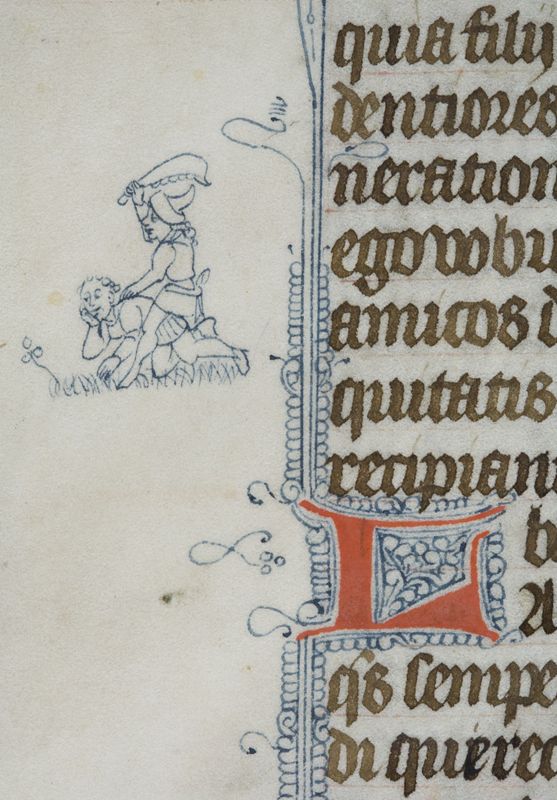 quia filii
dentiores
neration
ego vobi
amicos d
quitatis
recipiant
L
b
A
qͥs sempe
di querec